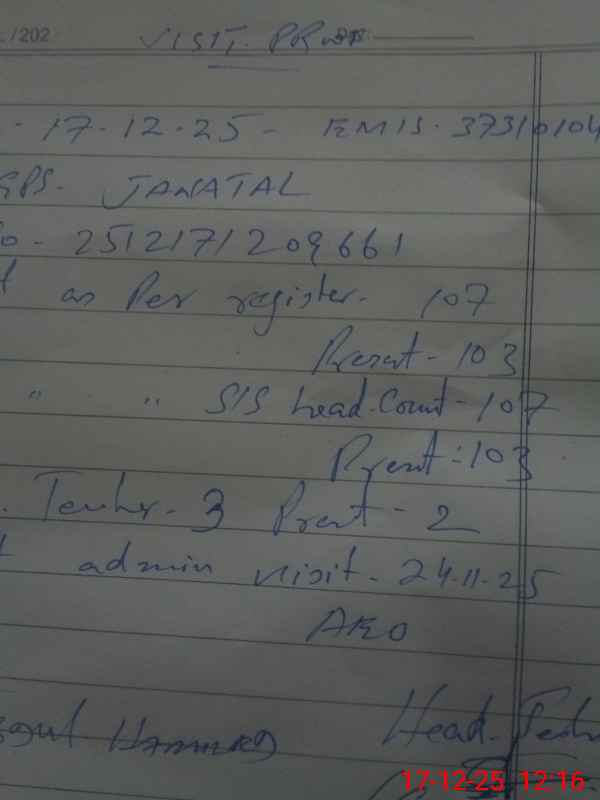 /202
VISIT. PROOF
- 17-12-25 - EMIS. 37310104
GPS. JANATAL
o - 2512171209661
t as Per register. 107
Present - 103
" " SIS head.Count - 107
Present : 103
. Teacher - 3 Present - 2
t admin visit - 24-11-25
AEO
Head.
17-12-25 12:16